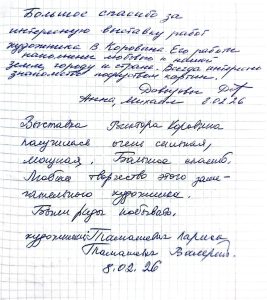 Большое спасибо за
интересную выставку работ
художника В Коровина Его работы
наполнены любовью к нашей
земле, городу и стране. Всегда интересно
знакомство картин!
Анна, 8.02.26
Выставка Виктора Коровина
получилась очень сильная,
мощная. Большое спасибо.
Любим творчество этого заме-
чательного художника.
Были рады побывать.
художники: Таманцевы Лариса
Таманцев Валерий.
8.02.26